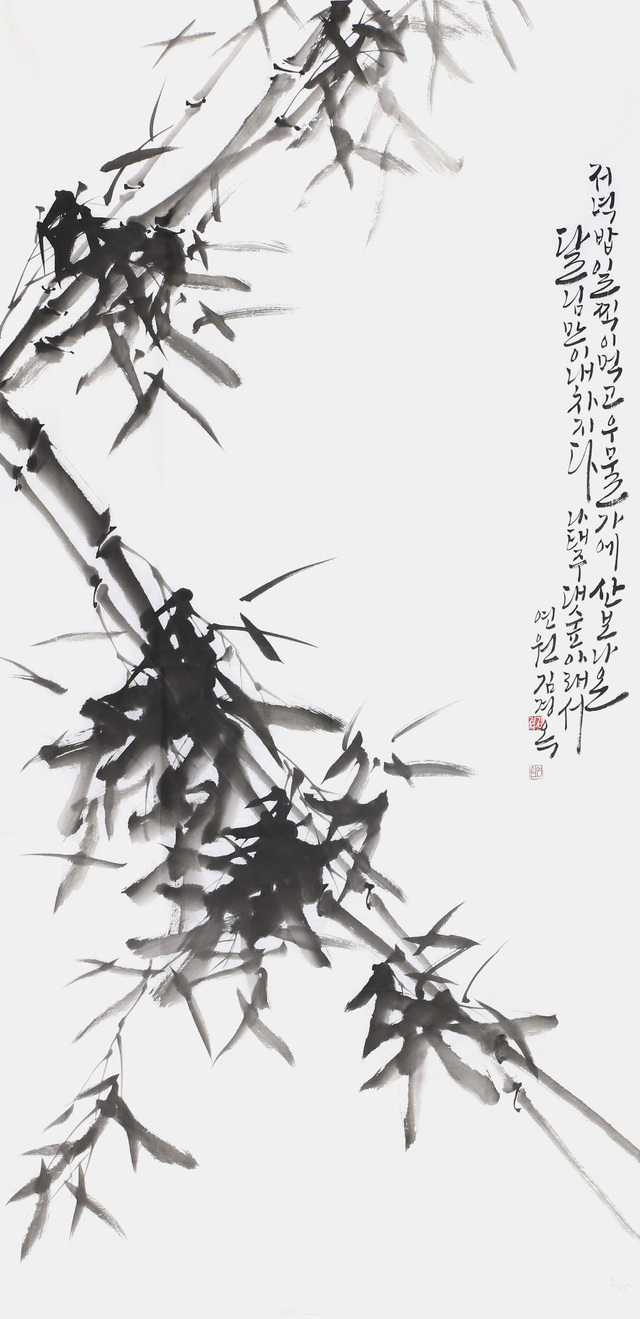 저녁밥 일찍이 먹고 우물가에 산보 나온
달님만이 내 차지다 나태주 댓숲 아래서
연원 김경옥